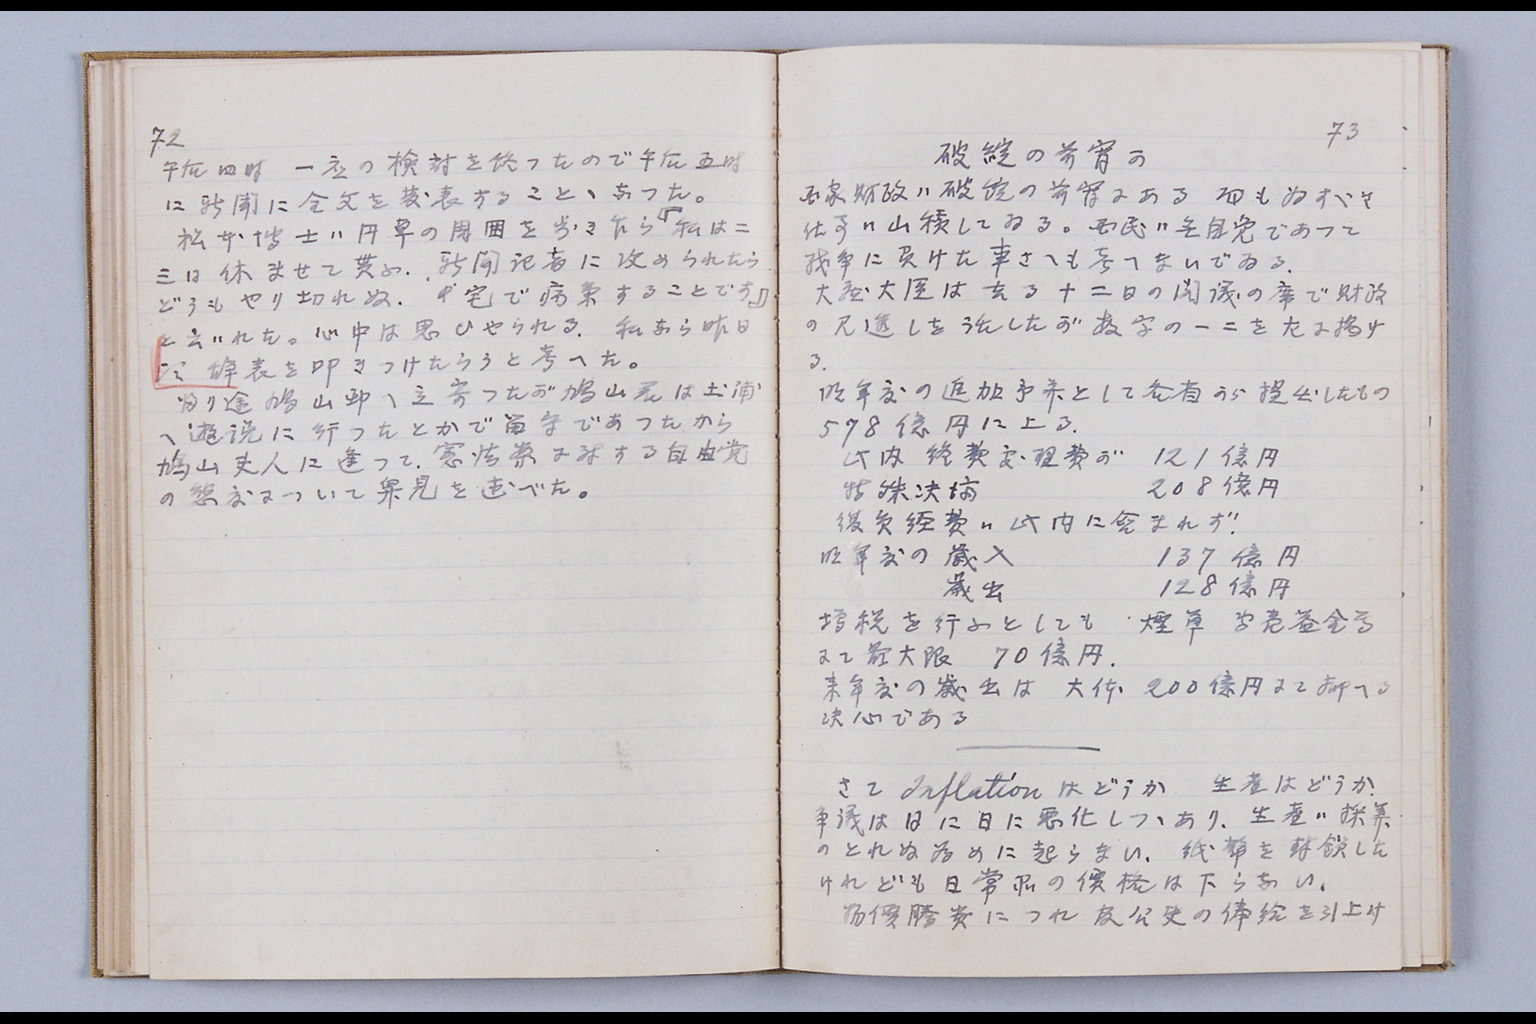 72
午后四時 一応の検討を終つたので午后五時
に新聞に全文を発表することヽなつた。
松本博士ハ円卓の周囲を歩き乍ら『私は二
三日休ませて貰ふ. 新聞記者に攻められたら
どうもやり切れぬ. 自宅で病気することです』
と云ハれた。心中は思ひやられる. 私なら昨日
辞表を叩きつけたらうと考へた。
帰り途鳩山邸へ立寄つたが鳩山君は土浦
へ遊説に行つたとかで留守であつたから
鳩山夫人に逢つて. 憲法案に対する自由党
の態度について意見を述べた。
73
破綻の前宵の
国家財政ハ破綻の前宵にある 而も為すべき
仕事ハ山積してゐる。国民ハ無自覚であつて
戦争に負けた事さへも考へないでゐる.
大蔵大臣は去る十二日の閣議の席で財政
の見透しを話したが数字の一二を左に掲げ
る.
昨年度の追加予算として各省から提出したもの
578億円に上る.
此内 終戦処理費が 121億円
特殊決済 208億円
復員経費ハ此内に含まれず.
昨年度の歳入 137億円
歳出 128億円
増税を行ふとしても 煙草 専売益金等
にて最大限 70億円.
来年度の歳出は 大体 200億円にて抑へる
決心である
さて Inflation はどうか 生産はどうか.
争議は日に日に悪化しつヽあり、生産ハ採算
のとれぬ為めに起らない. 紙幣を封鎖した
けれども日常品の価格は下らない.
物価騰貴につれ 官公吏の俸給を引上げ